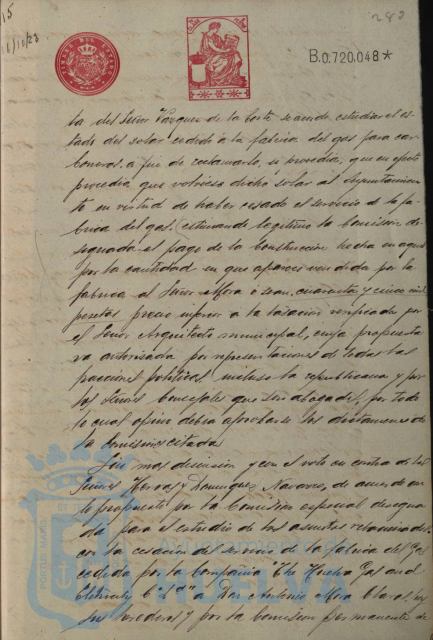 15
1/10/23
282
TIMBRE DEL ESTADO
B.0.720.048*
ta del Señor Vazquez de la Corte se acordo estudiar el es-
tado del solar cedido á la fabrica del gas para car-
boneras, á fin de reclamarlo, si procedia; que en efecto
procedia que volviese dicho solar al Ayuntamien-
to en virtud de haber cesado el servicio de la fá-
brica del gas, estimando legitimo la Comisión de-
signada el pago de la construcción hecha en aquel
por la cantidad en que aparece vendida por la
fabrica al Señor Mora ó sean cuarenta y cinco mil
pesetas precio inferior á la tasación verificada por
el Señor Arquitecto municipal, cuya propuesta
va autorizada por representaciones de todas las
fracciones politicas, incluso la republicana y por
los Señores Concejales que son abogados, por todo
lo cual opino debia aprobarse los dictamenes de
la Comisión citada
Sin mas discusión y con el voto en contra de los
Señores Hervas y Dominguez Navarro, de acuerdo con
lo propuesto por la Comisión especial designa-
da para el estudio de los asuntos relacionados
con la cesación del servicio de la fabrica del Gas
cedida por la Compañia "The Huelva Gas and
Electricity Cº Ld" á Don Antonio Mora Claros,
sus herederos y por la Comisión permanente de
Ayuntamiento de
HUELVA